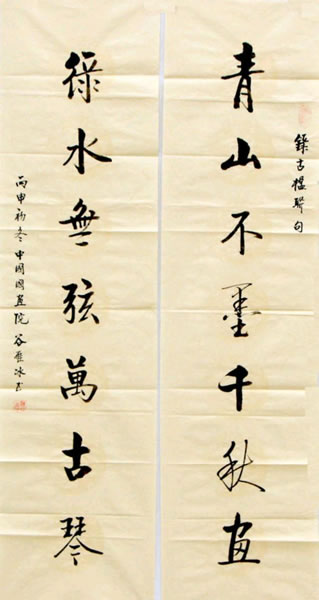 錄古楹聯句
青山不墨千秋画
綠水無弦萬古琴
丙申初冬中國國画院谷冰书